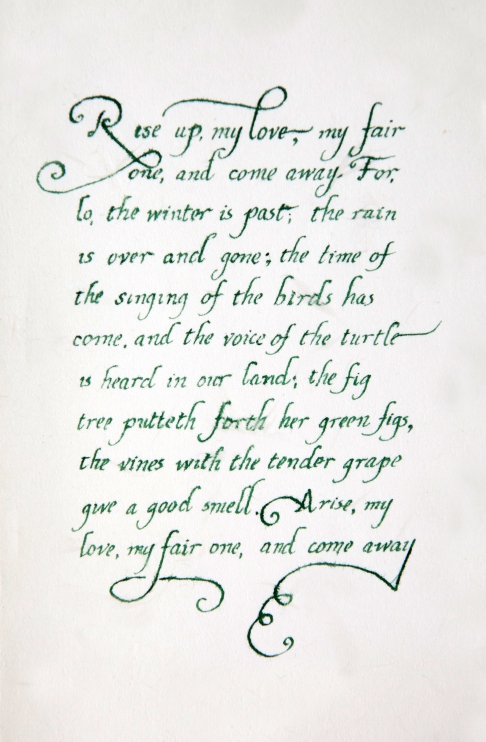 Rise up, my love, my fair
one, and come away. For,
lo, the winter is past; the rain
is over and gone; the time of
the singing of the birds has
come, and the voice of the turtle
is heard in our land; the fig
tree putteth forth her green figs,
the vines with the tender grape
give a good smell. Arise, my
love, my fair one, and come away